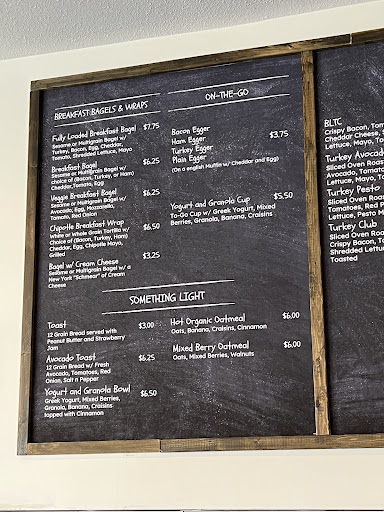 BREAKFAST BAGELS & WRAPS
Fully Loaded Breakfast Bagel $7.75
Sesame or Multigrain Bagel w/
Turkey, Bacon, Egg, Cheddar,
Tomato, Shredded Lettuce, Mayo
Breakfast Bagel $6.25
Sesame or Multigrain Bagel w/
choice of (Bacon, Turkey, or Ham)
Cheddar, Tomato, Egg
Veggie Breakfast Bagel $6.25
Sesame or Multigrain Bagel w/
Avocado, Egg, Mozzarella,
Tomato, Red Onion
Chipotle Breakfast Wrap $6.50
White or Whole Grain Tortilla w/
Choice of (Bacon, Turkey, Ham)
Cheddar, Egg, Chipotle Mayo,
Grilled
Bagel w/ Cream Cheese $3.25
Sesame or Multigrain Bagel w/ a
New York "Schmear" of Cream
Cheese
ON-THE-GO
Bacon Egger
Ham Egger $3.75
Turkey Egger
Plain Egger
(On a english Muffin w/ Cheddar and Egg)
Yogurt and Granola Cup $5.50
To-Go Cup w/ Greek Yogurt, Mixed
Berries, Granola, Banana, Craisins
SOMETHING LIGHT
Toast $3.00
12 Grain Bread served with
Peanut Butter and Strawberry
Jam
Avocado Toast $6.25
12 Grain Bread w/ Fresh
Avocado, Tomatoes, Red
Onion, Salt n Pepper
Yogurt and Granola Bowl $6.50
Greek Yogurt, Mixed Berries,
Granola, Banana, Craisins
topped with Cinnamon
Hot Organic Oatmeal $6.00
Oats, Banana, Craisins, Cinnamon
Mixed Berry Oatmeal $6.00
Oats, Mixed Berries, Walnuts
BLTC
Crispy Bacon, Tom
Cheddar Cheese,
Lettuce, Mayo, To
Turkey Avocad
Sliced Oven Roas
Avocado, Tomato
Lettuce, Mayo, To
Turkey Pesto
Sliced Oven Roas
Tomatoes, Red P
Lettuce, Pesto M
Turkey Club
Sliced Oven Roa
Crispy Bacon, To
Shredded Lettuc
Toasted